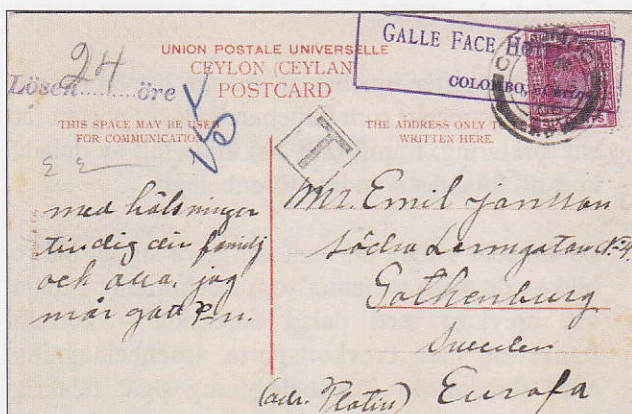 UNION POSTALE UNIVERSELLE
CEYLON (CEYLAN)
POSTCARD
GALLE FACE
COLOMBO,
24
Lösen.........öre
THIS SPACE MAY BE USED
FOR COMMUNICATION
THE ADDRESS ONLY TO
WRITTEN HERE.
T
med hälsninger
till dig din familj
och alla, jag
mår gott
Mr. Emil Jansson
Södra Larmgatan No 4
Gothenburg
Sweden
(adr. Platin) Europa